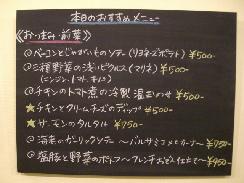 本日のおすすめメニュー
《おつまみ・前菜》
◎ベーコンとじゃがいものソテー(リヨネーズポテト) ¥500-
◎三種野菜の浅いピクルス(マリネ) ¥500-
(ニンジン・トマト・
◎チキンのトマト煮の冷製 温 ¥500-
★チキンとクリームチーズのディップ ¥500-
★サーモンのタルタル ¥750-
◎海老のガーリックソテー 〜バルサミコ ¥750-
◎豚と野菜のポトフ〜フレンチおでん仕立て〜 ¥950-